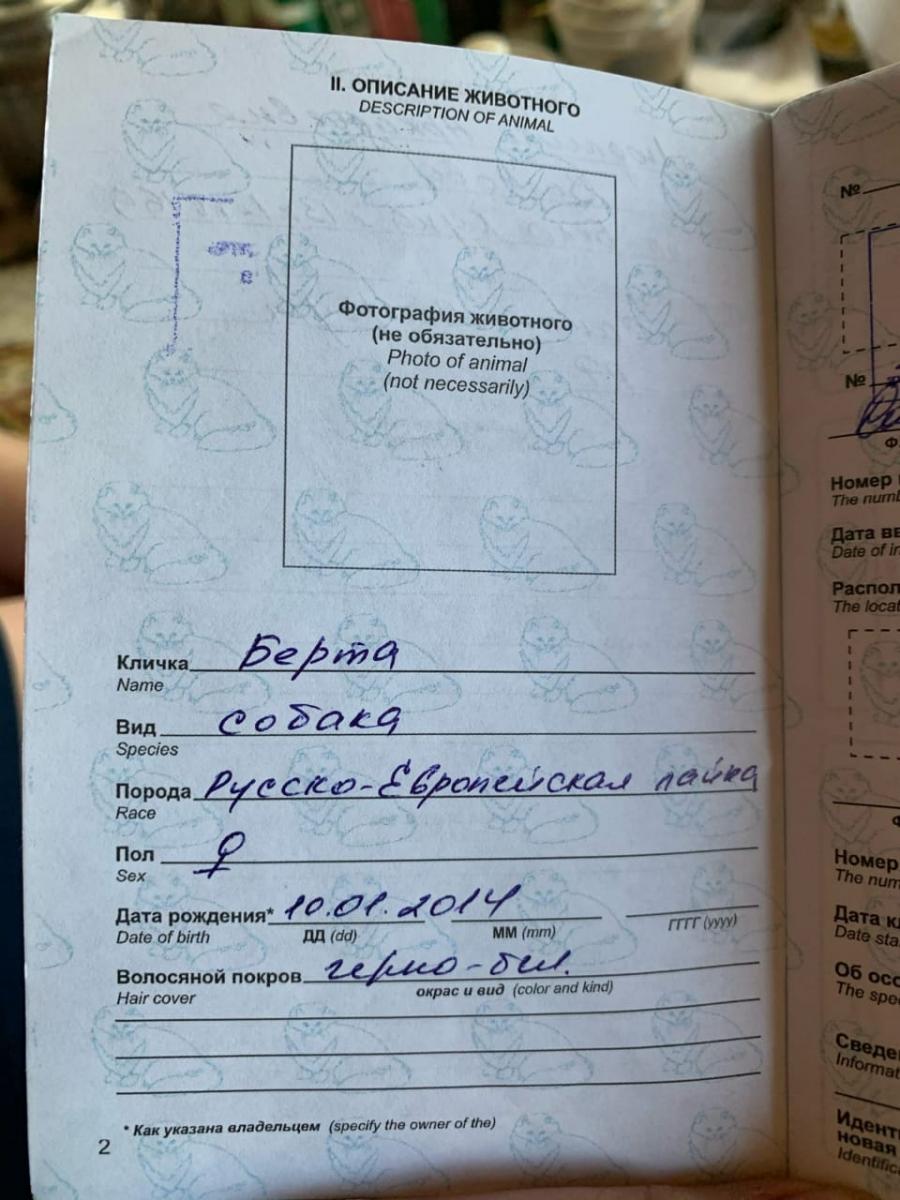 II. ОПИСАНИЕ ЖИВОТНОГО
DESCRIPTION OF ANIMAL
Фотография животного
(не обязательно)
Photo of animal
(not necessarily)
Кличка Берта
Name
Вид собака
Species
Порода Русско-Европейская лайка
Race
Пол ♀
Sex
Дата рождения* 10.01.2014
Date of birth ДД (dd) ММ (mm) ГГГГ (yyyy)
Волосяной покров черно-бел.
Hair cover окрас и вид (color and kind)
* Как указана владельцем (specify the owner of the)
2
№
№
Номер
The numb
Дата вв
Date of in
Распол
The locat
Номер
The num
Дата кл
Date sta
Об осо
The spe
Сведе
Informat
Идент
новая
Identific